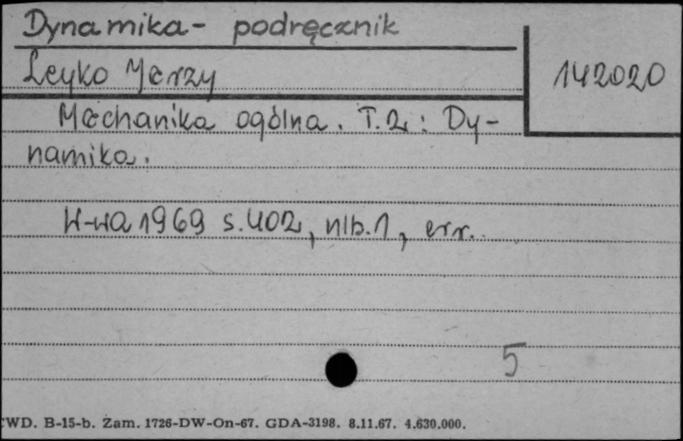 Dynamika - podręcznik
Leyko Jerzy
142020
Mechanika ogólna. T.2: Dy-
namika.
W-wa 1969 s.402, nlb.1, err.
5
CWD. B-15-b. Zam. 1726-DW-On-67. GDA-3198. 8.11.67. 4.630.000.